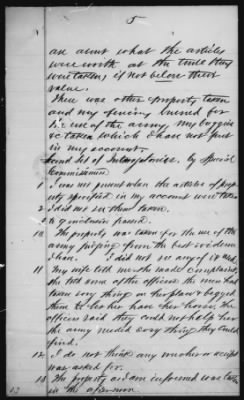 5
an amt what the articles
were worth at the time they
were taken, if not below their
value.
There was other property taken
and my fencing burned for
the use of the army, my buggy
was taken which I have not put
in my account.
Second Set of Interrogatories, by Special
Commissioner
1 I was not present when the articles of prop
erty specified in my account were taken
2 I did not see them taken.
to 9 inclusive passed.
10 The property was taken for the use of the
army judging from the best evidence
I have. I did not see any of it used.
11 My wife told me she made complaint,
she told some of the officers the men had
taken every thing on the place & begged
them to let her have her horse, the
officers said they could not help her
the army needed every thing they could
find.
12 I do not think any voucher or receipt
was asked for.
13 The property as I am informed was taken
in the afternoon.